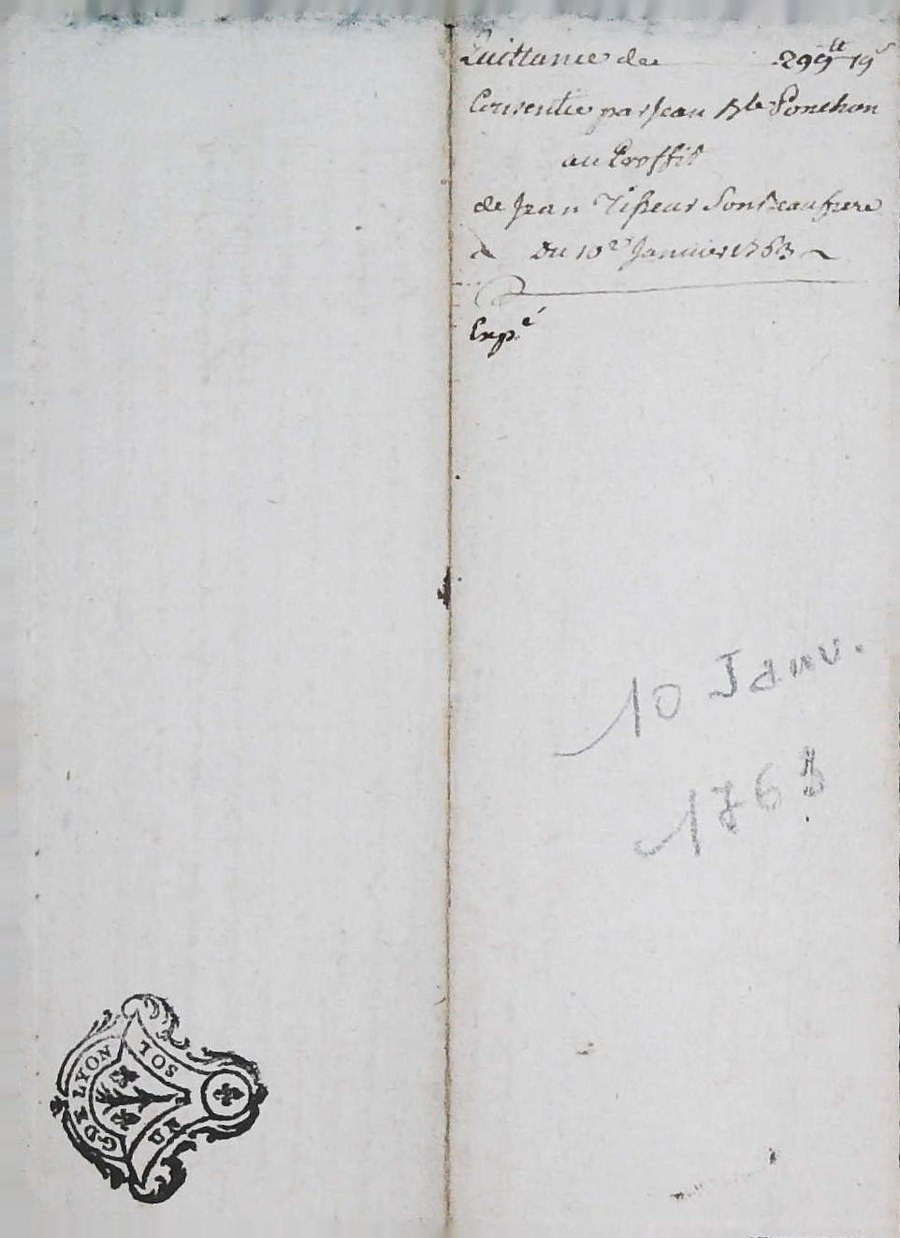 Quittance de 299ᵗᵗ 19ˢ
Consentie par Jean Bte Ponchon
au Proffit
de Jean Tisseur Son Beaufrere
Du 10e Janvier 1763
Expé
10 Janv.
1763
G. DE LYON
UN SOL